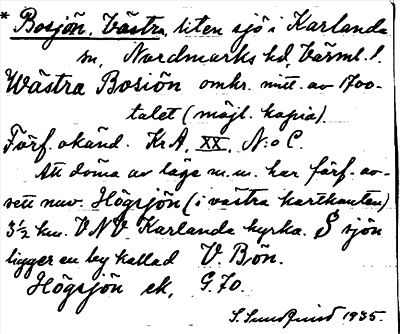 * Bosjön, Västra, liten sjö i Karlanda
sn, Nordmarks hd, Värml. l.
Wästra Bosiön omkr. mitt. av 1700-
talet (möjl. kopia).
Förf. okänd. KrA, XX, N:o C.
Att döma av läge m.m. har förf. av-
sett nuv. Högsjön (i västra kartkanten)
3½ km. VNV Karlanda kyrka. S sjön
ligger en by kallad V. Bön.
Högsjön ek. G.70.
S. Sundqvist 1935.